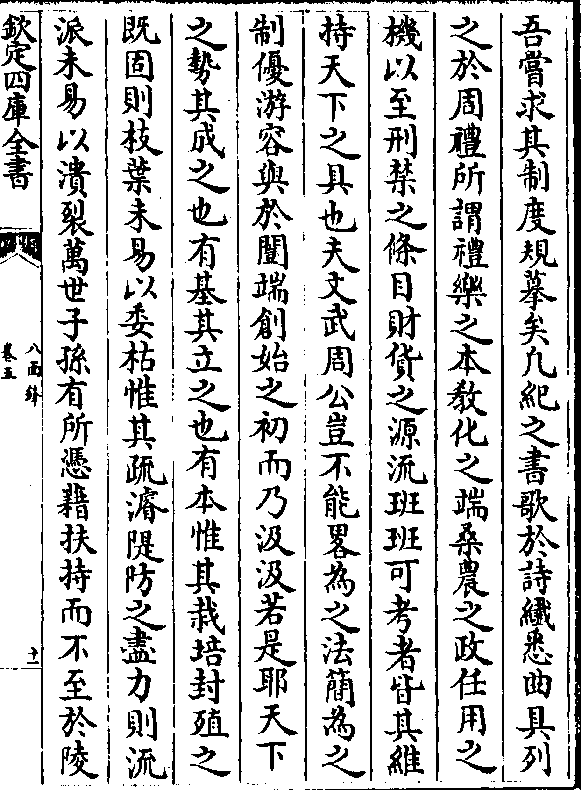 吾嘗求其制度規摹矣凡紀之書歌於詩纎悉曲具列
之於周禮所謂禮樂之本教化之端桑農之政任用之
機以至刑禁之條目財貨之源流班班可考者皆其維
持天下之具也夫文武周公豈不能畧為之法簡為之
制優游容與於闓端創始之初而乃汲汲若是耶天下
之勢其成之也有基其立之也有本惟其栽培封殖之
既固則枝葉未易以委枯惟其疏濬隄防之盡力則流
派未易以潰裂萬世子孫有所憑藉扶持而不至於陵
欽定四庫全書
八面鋒
卷五
十一